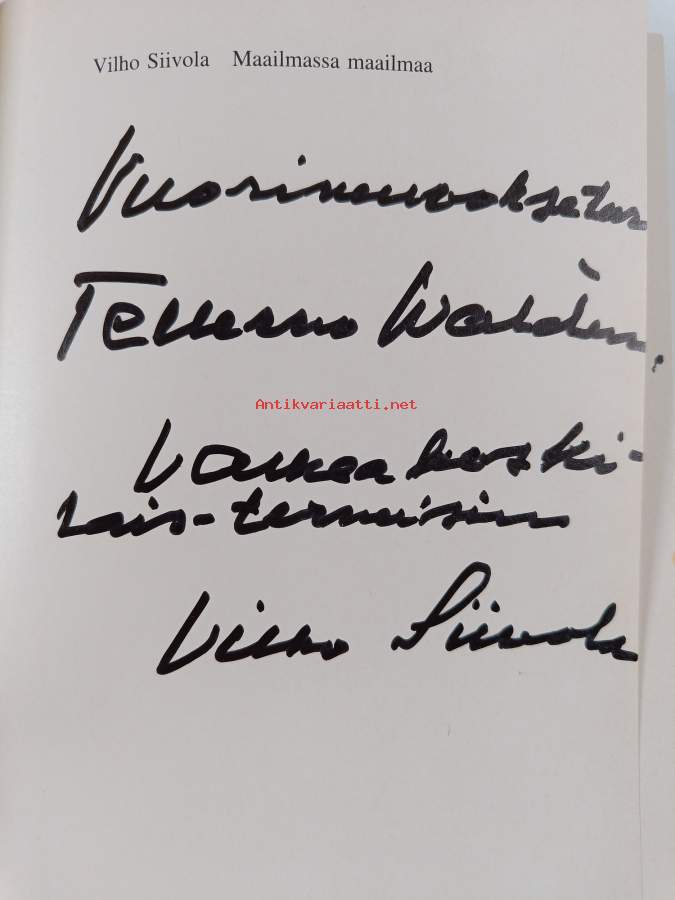 Vilho Siivola Maailmassa maailmaa
Vuorineuvoksetar
Tellervo Walden,
Antikvariaatti.net
Valkeakoski-
lais-terveisin
Vilho Siivola